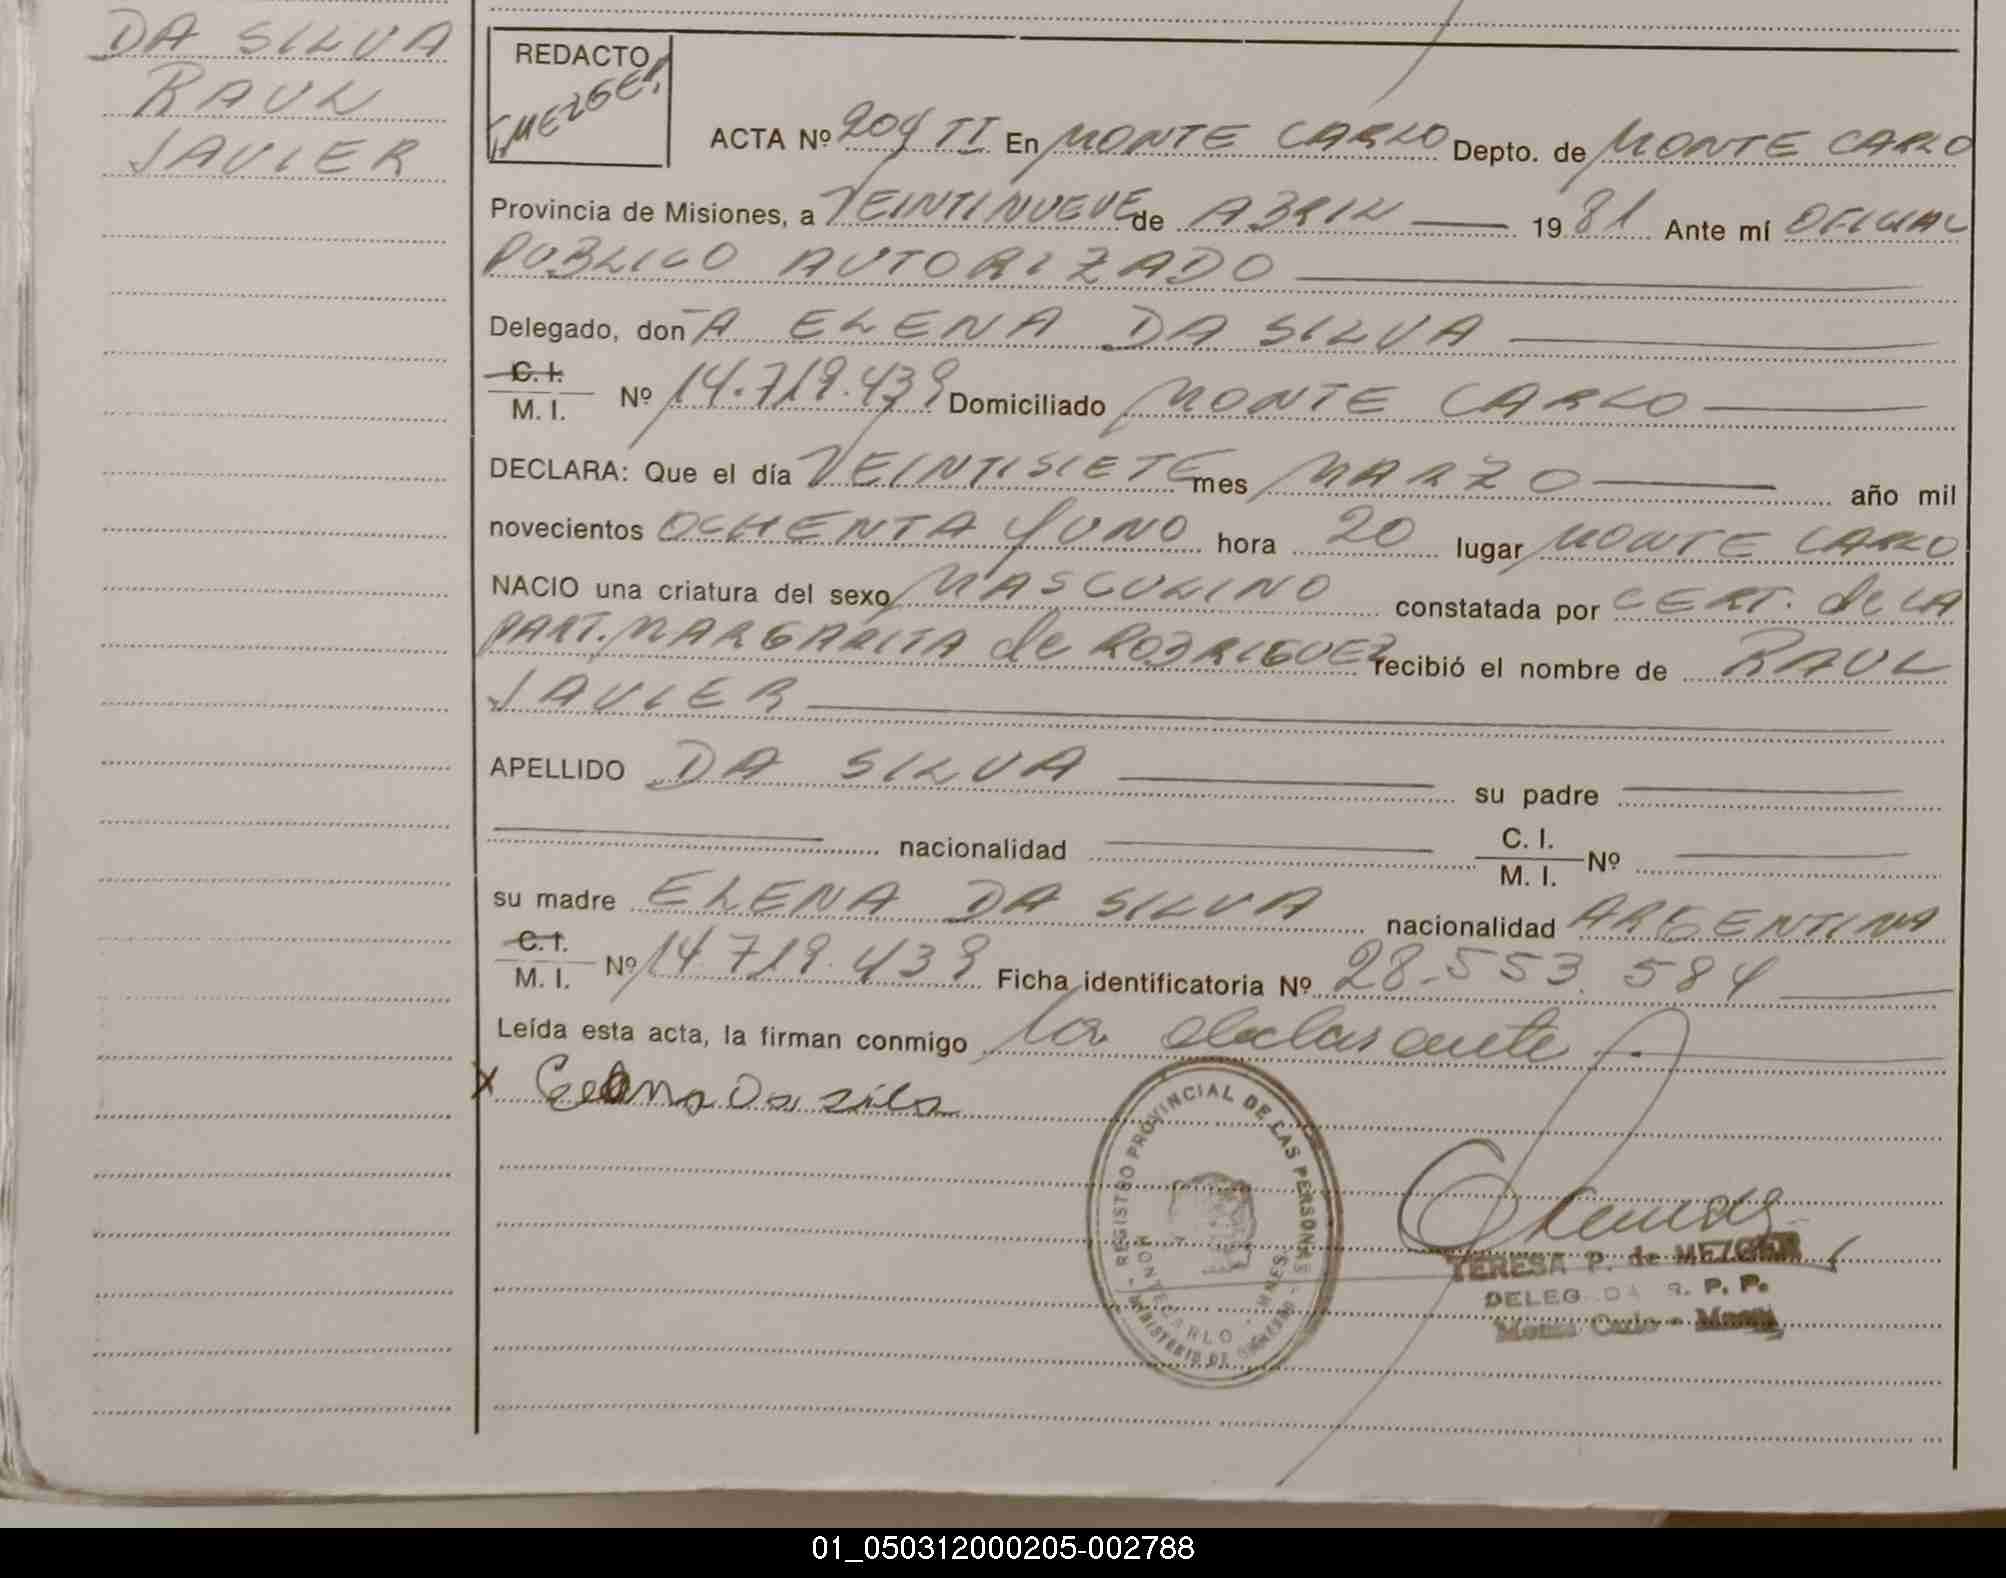 DA SILVA
RAUL
JAVIER
REDACTO
MEZGER
ACTA Nº 204 II En MONTE CARLO Depto. de MONTE CARLO
Provincia de Misiones, a VEINTINUEVE de ABRIL 1981 Ante mí OFICIAL
PUBLICO AUTORIZADO
Delegado, don A ELENA DA SILVA
C. I.
M. I. Nº 14.719.439 Domiciliado MONTE CARLO
DECLARA: Que el día VEINTISIETE mes MARZO año mil
novecientos OCHENTA Y UNO hora 20 lugar MONTE CARLO
NACIO una criatura del sexo MASCULINO constatada por CERT. de LA
PART. MARGARITA de RODRIGUEZ recibió el nombre de RAUL
JAVIER
APELLIDO DA SILVA su padre
nacionalidad C. I.
M. I. Nº
su madre ELENA DA SILVA nacionalidad ARGENTINA
C. I.
M. I. Nº 14.719.439 Ficha identificatoria Nº 28.553.584
Leída esta acta, la firman conmigo la declarante.
x Elena Da silva
REGISTRO PROVINCIAL DE LAS PERSONAS
MONTECARLO - MNES.
MINISTERIO DE GOBIERNO
TERESA P. de MEZGER
DELEGADA R. P. P.
Monte Carlo - Mnes.
01_050312000205-002788